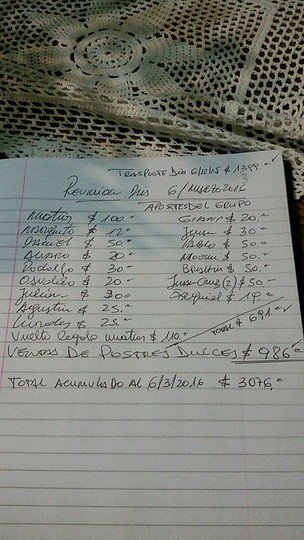 TRASPORTE DIA 6/12/15 $ 1399.=
REUNION DIA 6/MARZO 2016
APORTES DEL GRUPO
MATIAS $ 100.= GIANI $ 20.=
MARGARITO $ 12= JUAN $ 30=
DANIEL $ 50.= PABLO $ 50.=
ALVARO $ 20= MOOKI $ 50.=
RODOLFO $ 30= $ 50.=
OSVALDO $ 20 JUAN CRUZ (2) $ 50=
JULIAN $ 300= EZEQUIEL $ 19=
AGUSTIN $ 25.=
LOURDES $ 25.= TOTAL $ 691=
VUELTO REGALO MATIAS $ 110.=
VENTAS DE POSTRES DULCES $ 986=
TOTAL ACUMULADO AL 6/3/2016 $ 3076,=